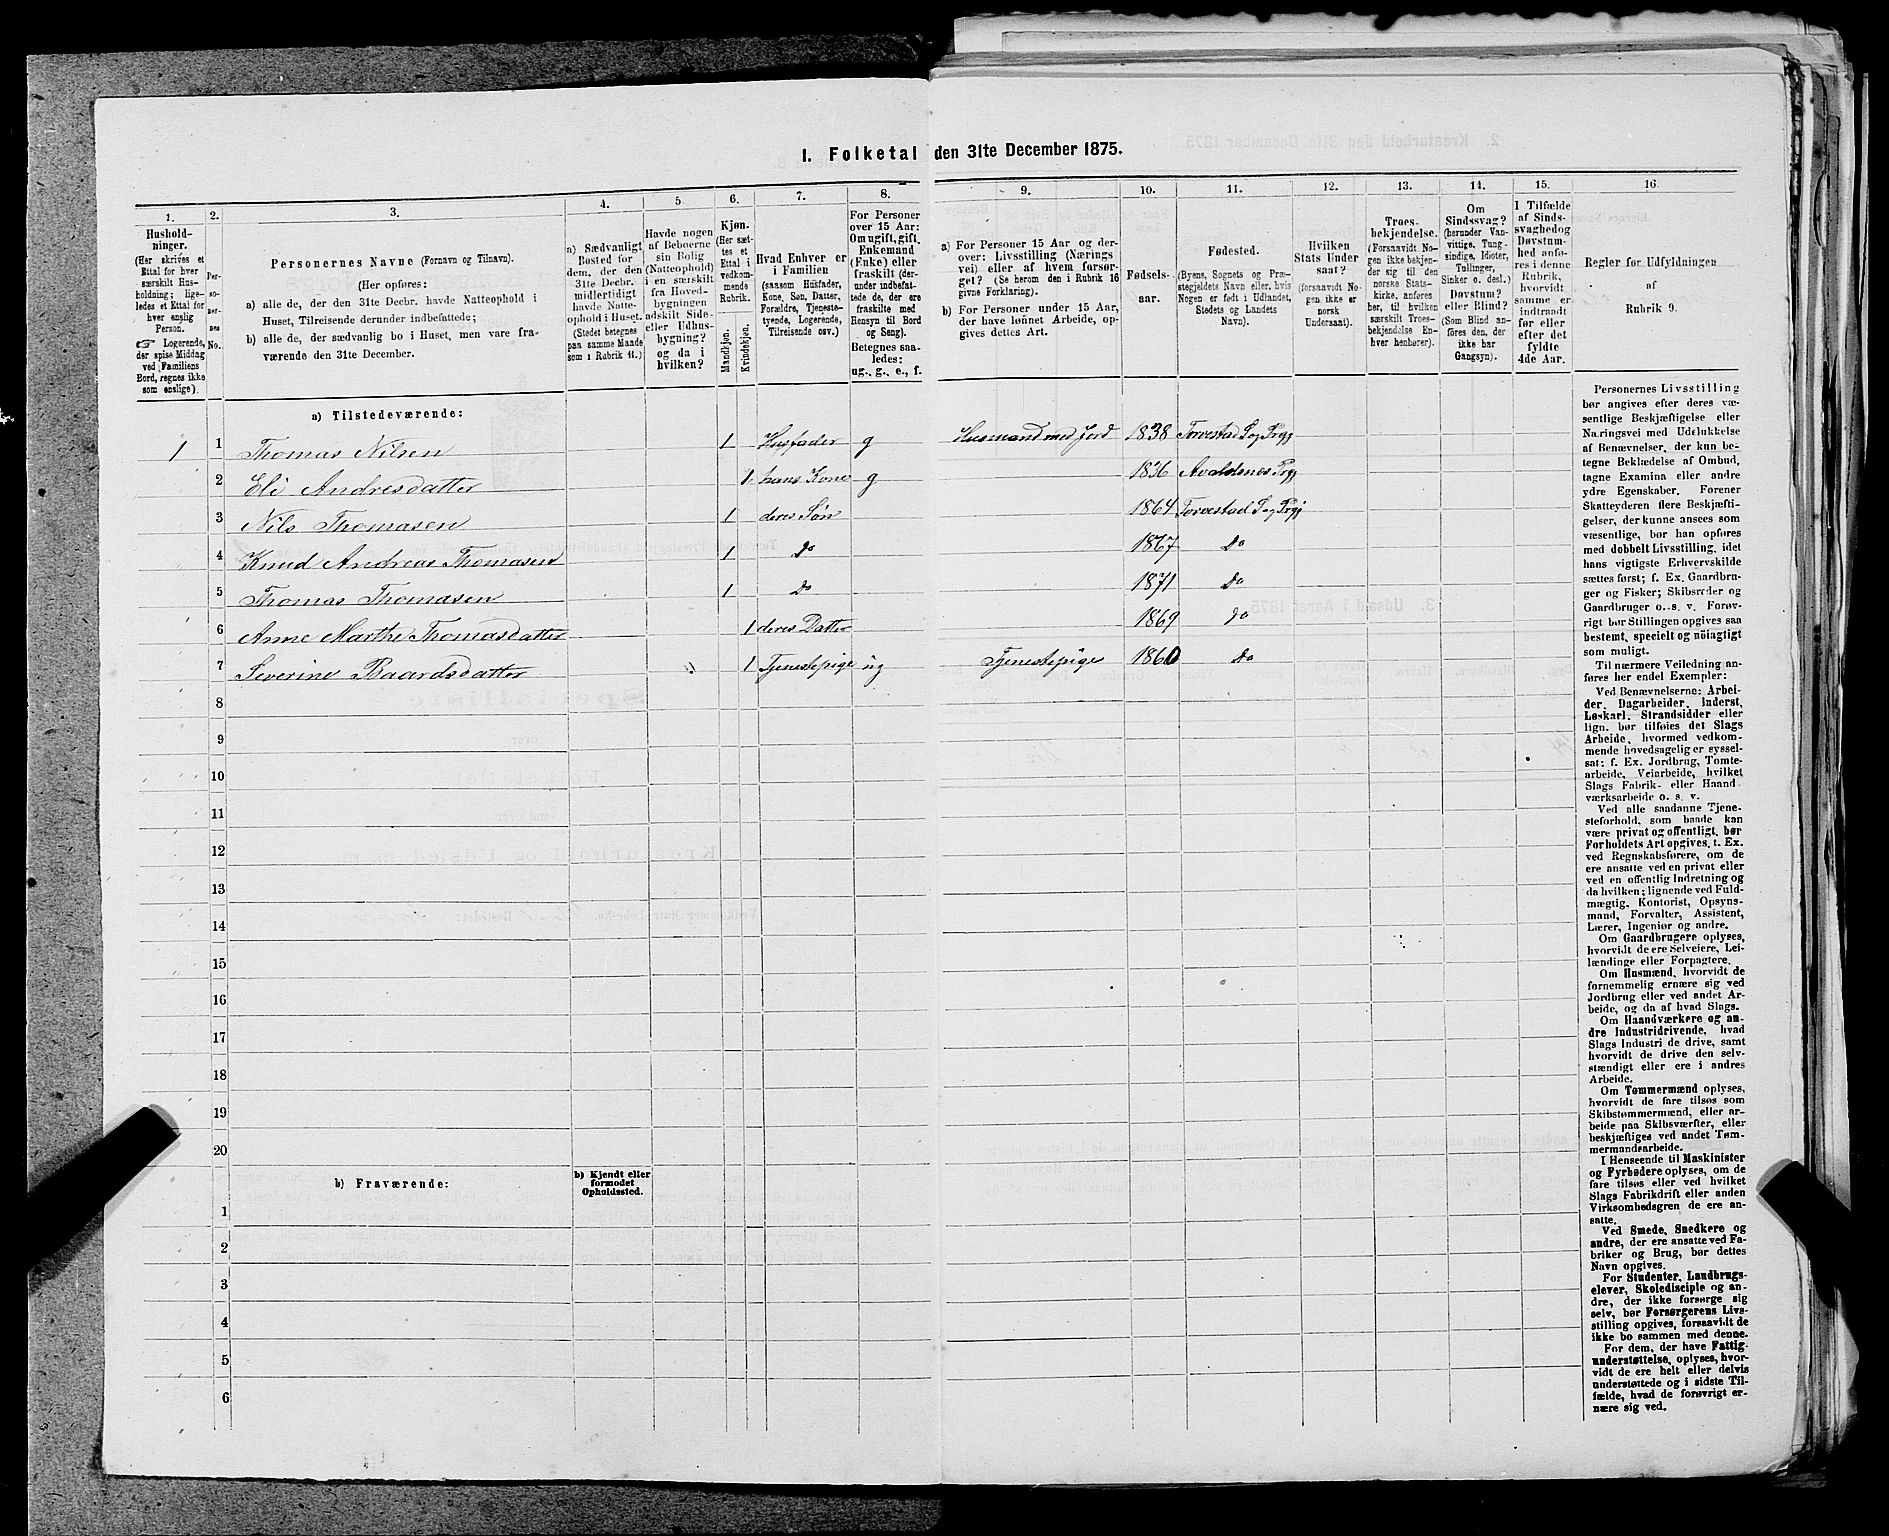 1. Folketal den 31te December 1875.
1. 2. 3. 4. 5. 6. 7. 8. 9. 10. 11. 12. 13. 14. 15. 16.
Hushold-
ninger.
(Her skrives et
Ettal for hver
særskilt Hus-
holdning; lige-
ledes et Ettal for
hver enslig
Person.
☞ Logerende,
der spise Middag
ved Familiens
Bord, regnes ikke
som enslige).
Per-
so-
ner-
nes
No.
Personernes Navne (Fornavn og Tilnavn).
(Her opføres:
a) alle de, der den 31te Decbr. havde Natteophold i
Huset, Tilreisende derunder indbefattede;
b) alle de, der sædvanlig bo i Huset, men vare fra-
værende den 31te December.
a) Sædvanligt
Bosted for
dem, der den
31te Decbr.
midlertidigt
havde Natte-
ophold i Huset.
(Stedet betegnes
paa samme Maade
som i Rubrik 11.)
Havde nogen
af Beboerne
sin Bolig
(Natteophold)
i en særskilt
fra Hoved-
bygningen
adskilt Side-
eller Udhus-
bygning?
og da i
hvilken?
Kjøn.
(Her sæt-
tes et
Ettal i
vedkom-
mende
Rubrik.
Mandkjøn.
Kvindekjøn.
Hvad Enhver er
i Familien
(saasom Husfader,
Kone, Søn, Datter,
Forældre, Tjeneste-
tyende, Logerende,
Tilreisende osv.)
For Personer
over 15 Aar:
Om ugift, gift,
Enkemand
(Enke) eller
fraskilt (der-
under indbefat-
tede de, der ere
fraskilte med
Hensyn til Bord
og Seng).
Betegnes saa-
ledes:
ug., g., e., f.
a) For Personer 15 Aar og der-
over: Livsstilling (Nærings-
vei) eller af hvem forsør-
get? (Se herom den i Rubrik 16
givne Forklaring).
b) For Personer under 15 Aar,
der have lønnet Arbeide, op-
gives dettes Art.
Fødsels-
aar.
Fødested.
(Byens, Sognets og Præ-
stegjeldets Navn eller, hvis
Nogen er født i Udlandet,
Stedets og Landets
Navn).
Hvilken
Stats Under-
saat?
(forsaavidt No-
gen ikke er
norsk
Undersaat).
Troes-
bekjendelse.
(Forsaavidt No-
gen ikke bekjen-
der sig til den
norske Stats-
kirke, anføres
her, til hvilken
særskilt Troes-
bekjendelse En-
hver henhører).
Om
Sindssvag?
(herunder Van-
vittige, Tung-
sindige, Idioter,
Tullinger,
Sinker o. desl.)
Døvstum?
eller Blind?
(Som Blind an-
føres den, der
ikke har
Gangsyn).
I Tilfælde
af Sinds-
svaghed og
Døvstum-
hed anfø-
res i denne
Rubrik,
hvorvidt
samme er
indtraadt
før eller
efter det
fyldte
4de Aar.
Regler for Udfyldningen
af
Rubrik 9.
a) Tilstedeværende:
1 1 Thomas Nilsen 1 Husfader g Husmand med Jord 1838 Torvestad S og Prgj
2 Eli Andresdatter 1 hans Kone g 1836 Avaldsnes Prgj
3 Nils Thomasen 1 deres Søn 1864 Torvestad S og Prgj
4 Knud Andreas Thomasen 1 do 1867 do
5 Thomas Thomasen 1 do 1871 do
6 Anne Marthe Thomasdatter 1 deres Datter 1869 do
7 Severine Baardsdatter 1 Tjenestepige ug Tjenestepige 1860 do
8
9
10
11
12
13
14
15
16
17
18
19
20
b) Fraværende:
b) Kjendt eller
formodet
Opholdssted.
1
2
3
4
5
6
Personernes Livsstilling
bør angives efter deres væ-
sentlige Beskjæftigelse eller
Næringsvei med Udelukkelse
af Benævnelser, der kun be-
tegne Beklædelse af Ombud,
tagne Examina eller andre
ydre Egenskaber. Forener
Skatteyderen flere Beskjæfti-
gelser, der kunne ansees som
væsentlige, bør han opføres
med dobbelt Livsstilling, idet
hans vigtigste Erhvervskilde
sættes først; f. Ex. Gaardbru-
ger og Fisker; Skibsreder og
Gaardbruger o. s. v. Forøv-
rigt bør Stillingen opgives saa
bestemt, specielt og nöiagtigt
som muligt.
Til nærmere Veiledning an-
føres her endel Exempler:
Ved Benævnelserne: Arbei-
der, Dagarbeider, Inderst,
Løskarl, Strandsidder eller
lign. bør tilføies det Slags
Arbeide, hvormed vedkom-
mende hovedsagelig er syssel-
sat; f. Ex. Jordbrug, Tomte-
arbeide, Veiarbeide, hvilket
Slags Fabrik- eller Haand-
værksarbeide o. s. v.
Ved alle saadanne Tjene-
steforhold, som baade kan
være privat og offentligt, bør
Forholdets Art opgives, t. Ex.
ved Regnskabsførere, om de
ere ansatte ved en privat eller
ved en offentlig Indretning og
da hvilken; lignende ved Fuld-
mægtig, Kontorist, Opsyns-
mand, Forvalter, Assistent,
Lærer, Ingeniør og andre.
Om Gaardbrugere oplyses,
hvorvidt de ere Selveiere, Lei-
lændinge eller Forpagtere.
Om Husmænd, hvorvidt de
fornemmelig ernære sig ved
Jordbrug eller ved andet Ar-
beide, og da af hvad Slags.
Om Haandværkere og an-
dre Industridrivende, hvad
Slags Industri de drive, samt
hvorvidt de drive den selv-
stændigt eller ere i andres
Arbeide.
Om Tømmermænd oplyses,
hvorvidt de fare tilsøs som
Skibstømmermænd, eller ar-
beide paa Skibsværfter, eller
beskjæftiges ved andet Tøm-
mermandsarbeide.
I Henseende til Maskinister
og Fyrbødere oplyses, om de
fare tilsøs eller ved hvilket
Slags Fabrikdrift eller anden
Virksomhedsgren de ere an-
satte.
Ved Smede, Snedkere og
andre, der ere ansatte ved Fa-
briker og Brug, bør dettes
Navn opgives.
For Studenter, Landbrugs-
elever, Skoledisciple og an-
dre, der ikke forsørge sig
selv, bør Forsørgerens Livs-
stilling opgives, forsaavidt de
ikke bo sammen med denne.
For dem, der have Fattig-
understøttelse, oplyses, hvor-
vidt de ere helt eller delvis
understøttede og i sidste Til-
fælde, hvad de forøvrigt er-
nære sig ved.